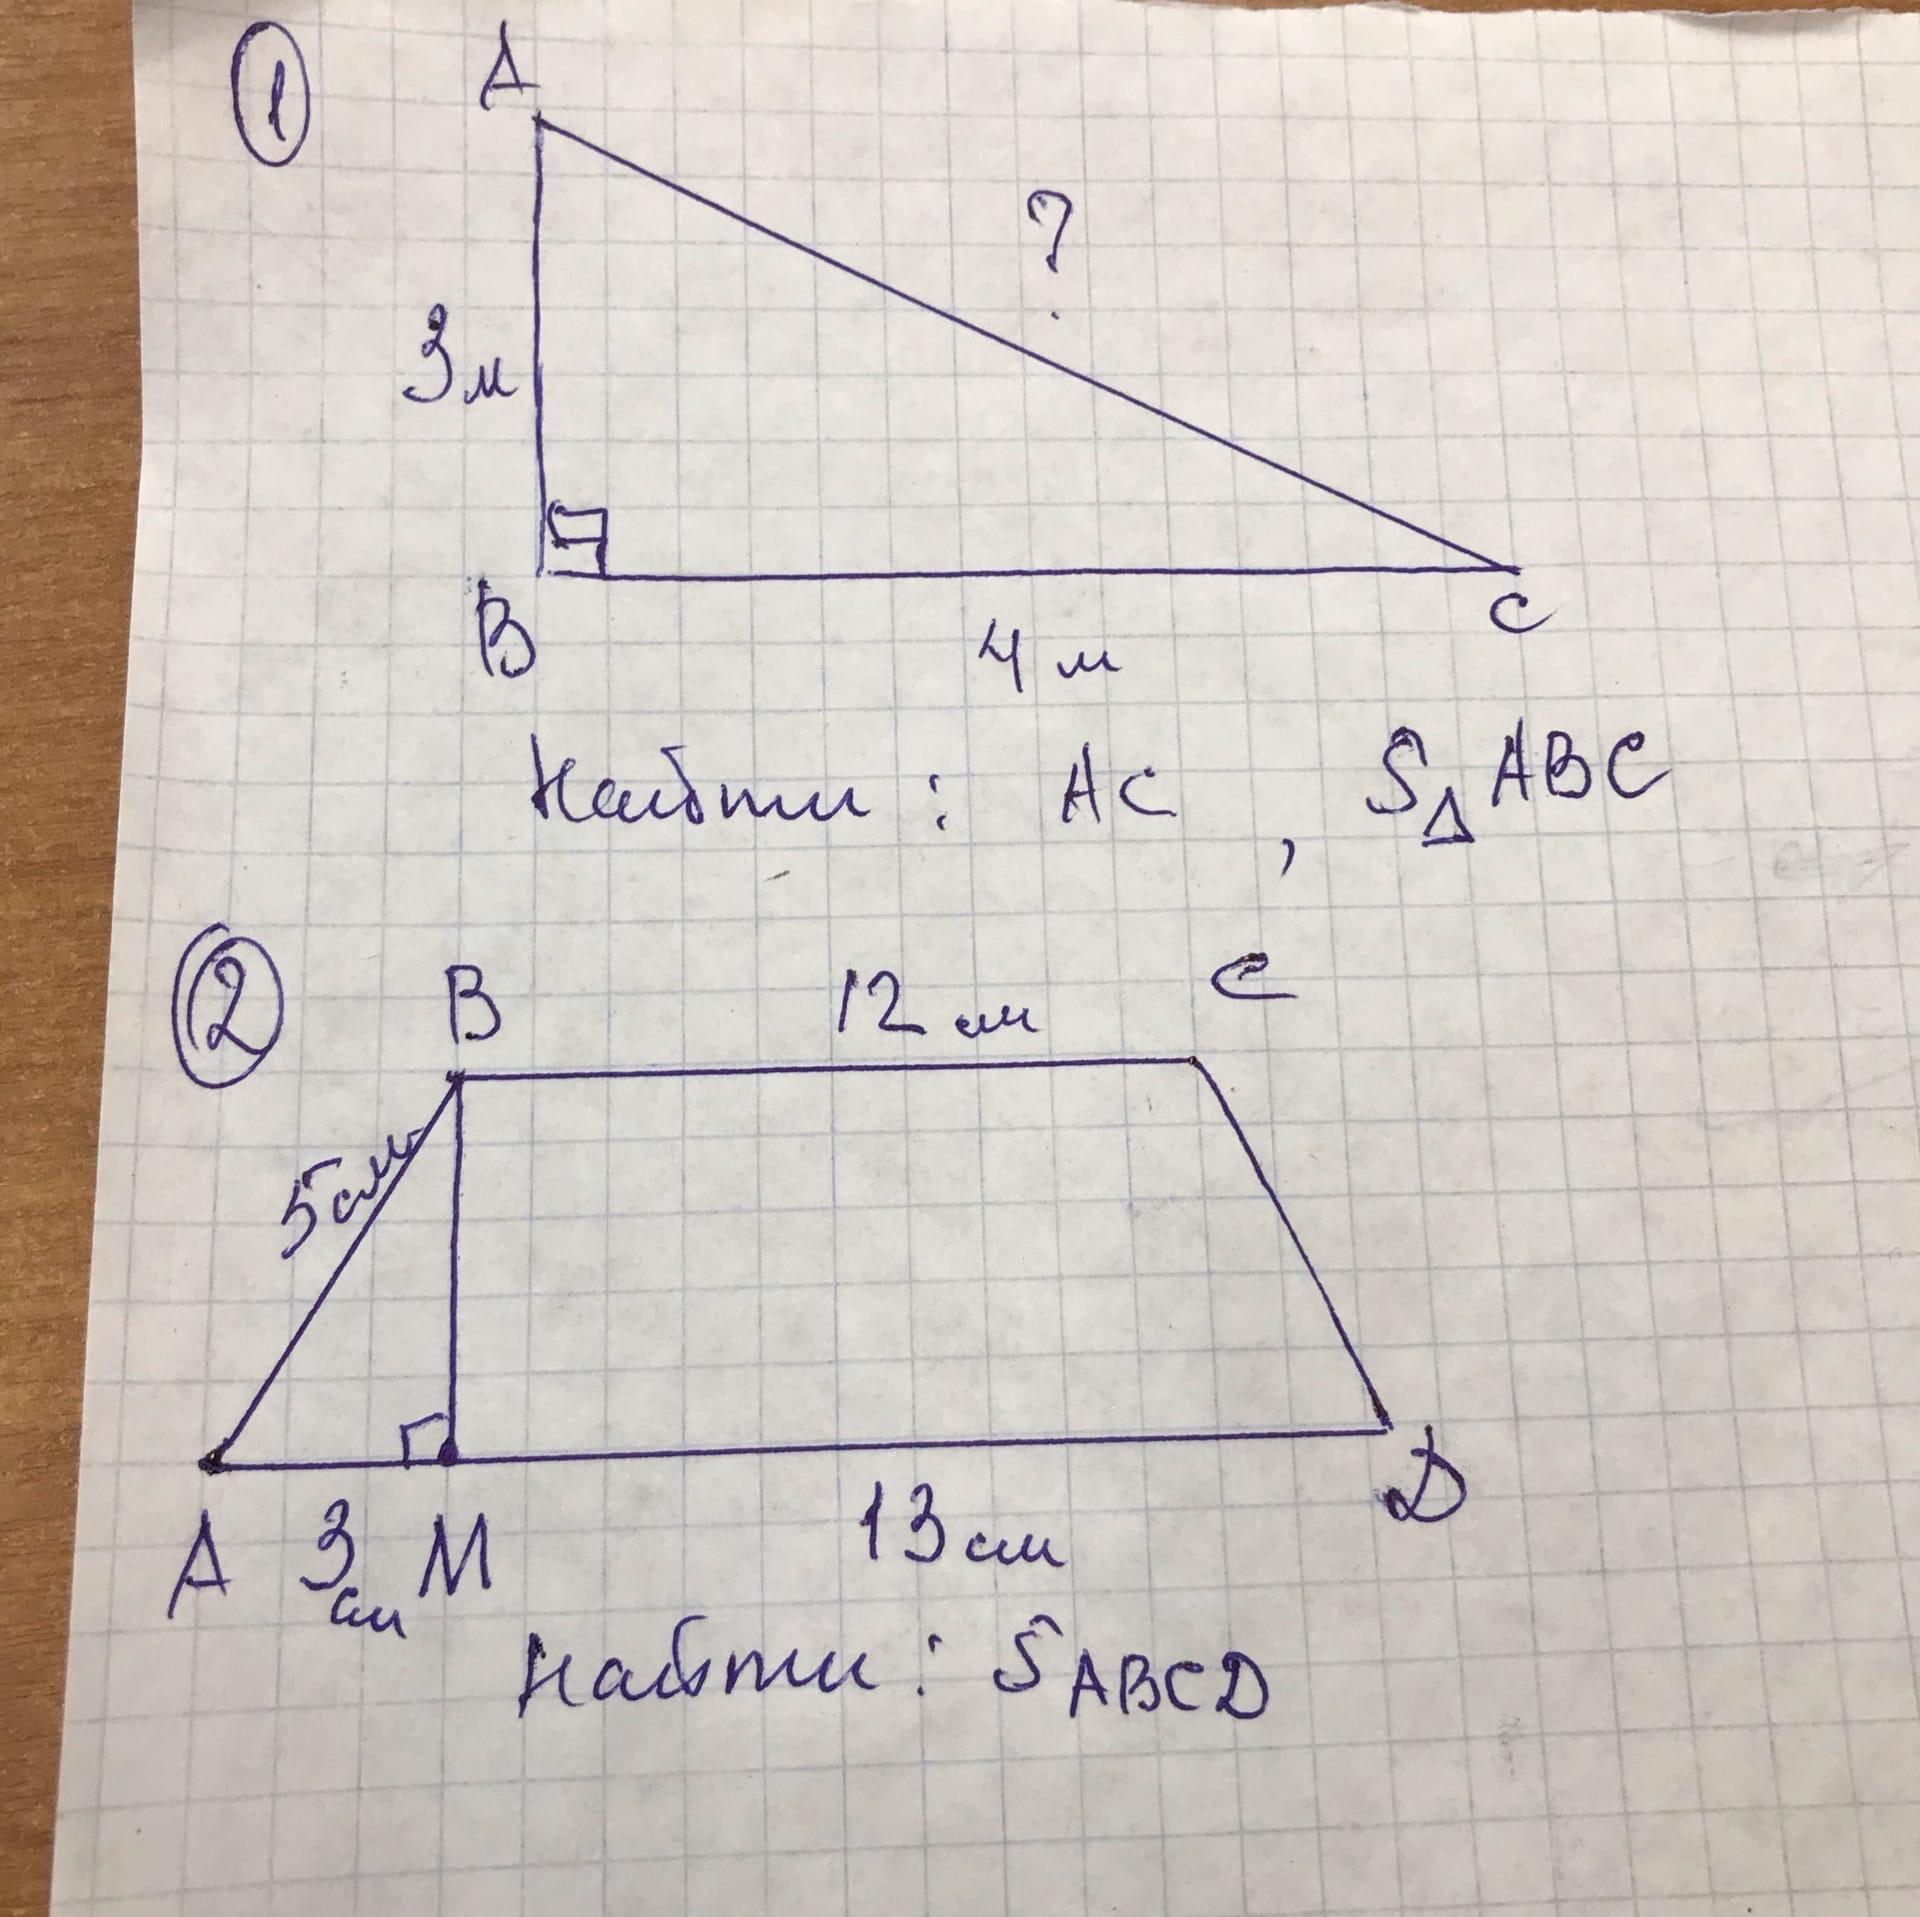 1
A
?
3м
B
C
4м
Найти: AC, S△ABC
2
B 12 см C
5см
A 3 см M 13 см D
Найти: S ABCD